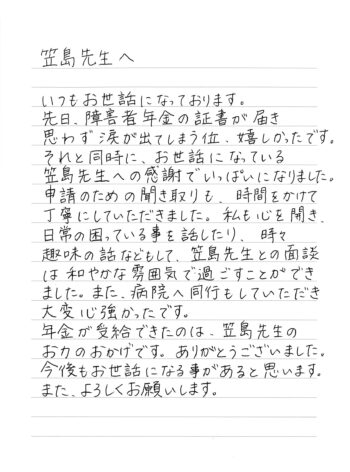 笠島先生へ
いつもお世話になっております。
先日、障害者年金の証書が届き
思わず涙が出てしまう位、嬉しかったです。
それと同時に、お世話になっている
笠島先生への感謝でいっぱいになりました。
申請のための聞き取りも、時間をかけて
丁寧にしていただきました。私も心を開き、
日常の困っている事を話したり、時々
趣味の話などもして、笠島先生との面談
は和やかな雰囲気で過ごすことができ
ました。また、病院へ同行もしていただき
大変心強かったです。
年金が受給できたのは、笠島先生の
お力のおかげです。ありがとうございました。
今後もお世話になる事があると思います。
また、よろしくお願いします。